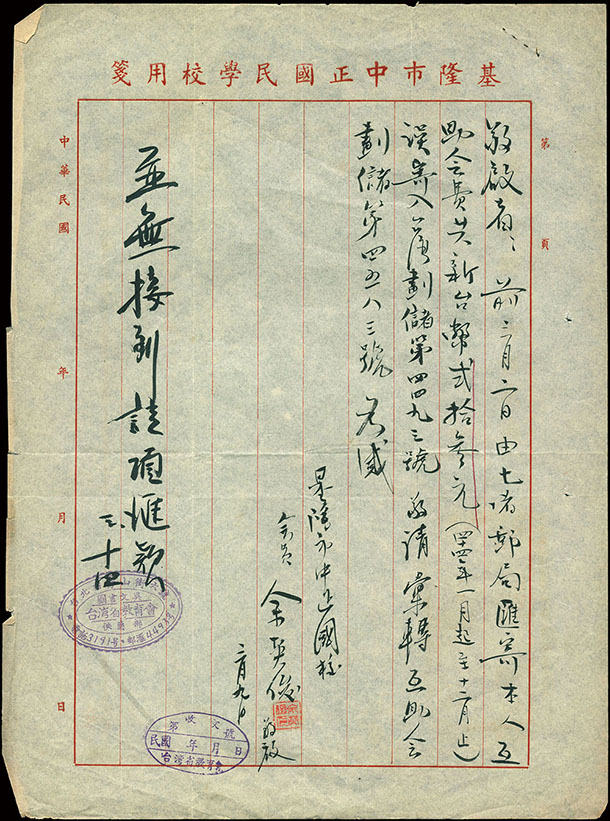 基隆市中正國民學校用箋
第 頁
敬啟者、前二月二日由七堵郵局匯寄本人互
助会費共新台幣弍拾叁元（四四年一月起至十二月止）
誤寄入 劃儲第四四九三號 敬請彙轉互助会
劃儲第四五八三號 為感
基隆市中正國校
会員 余英俊 敬啟
二月九日
並無接到該項匯款
三、十四
台灣省教育會
收文
第 號
民國 年 月 日
台灣省教育會
中華民國 年 月 日